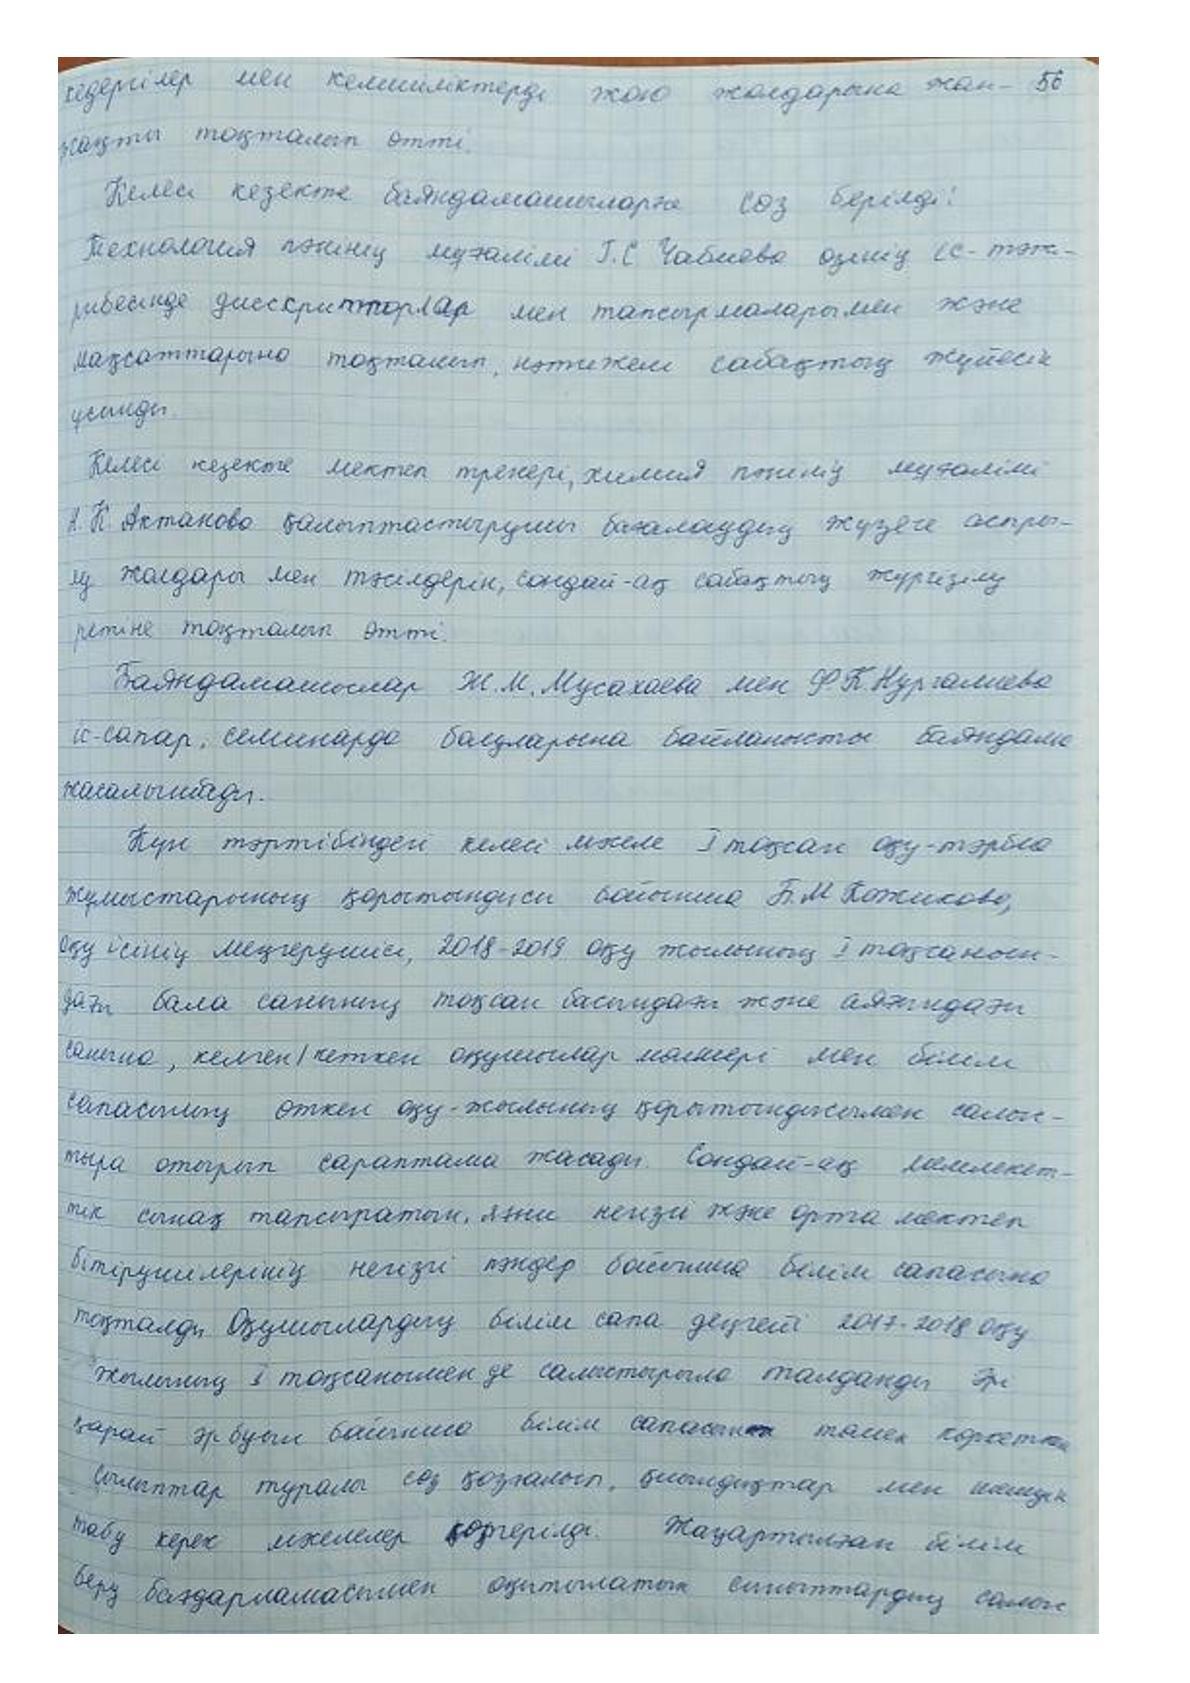 кедергілер мен кемшіліктерді жою жолдарына жан- 56
жақты тоқталып өтті.
Келесі кезекте баяндамашыларға сөз берілді:
Технология пәнінің мұғалімі Г.С Чабиева өзінің іс-тәжі-
рибесінде дискрипторлар мен тапсырмаларымен және
мақсаттарына тоқталып, нәтижелі сабақтың жүйесін
ұсынды.
Келесі кезекте мектеп тренері, химия пәнінің мұғалімі
А.К Актанова қалыптастырушы бағалаудың жүзеге асыры-
лу жолдары мен тәсілдерін, сондай-ақ сабақтың жүргізілу
ретіне тоқталып өтті.
Баяндамашылар Ж.М. Мусахаева мен Ф К Нургалиева
іс-сапар, семинарда болуларына байланысты баяндама
жасалынбады.
Күн тәртібіндегі келесі мәселе I тоқсан оқу-тәрбие
жұмыстарының қорытындысы бойынша Б.М Кожикова,
оқу ісінің меңгерушісі, 2018-2019 оқу жылының I тоқсанын-
дағы бала санының тоқсан басындағы және аяғындағы
санына, келген/кеткен оқушылар мәлімері мен білім
сапасының өткен оқу-жылының қорытындысымен салыс-
тыра отырып сараптама жасады. Сондай-ақ мемлекет-
тік сынақ тапсыратын, яғни негізгі және орта мектеп
бітірушілерінің негізгі пәндер бойынша білім сапасына
тоқталды Оқушылардың білім сапа деңгейі 2017-2018 оқу
жылының I тоқсанымен де салыстырыла талданды Әрі
қарай әр буын бойынша білім сапасын төмен көрсеткен
сыныптар туралы сөз қозғалып, қиындықтар мен шешудің
табу керек мәселелер көтерілді. Жаңартылған білім
беру бағдарламасымен оқытылатын сыныптардың салыс